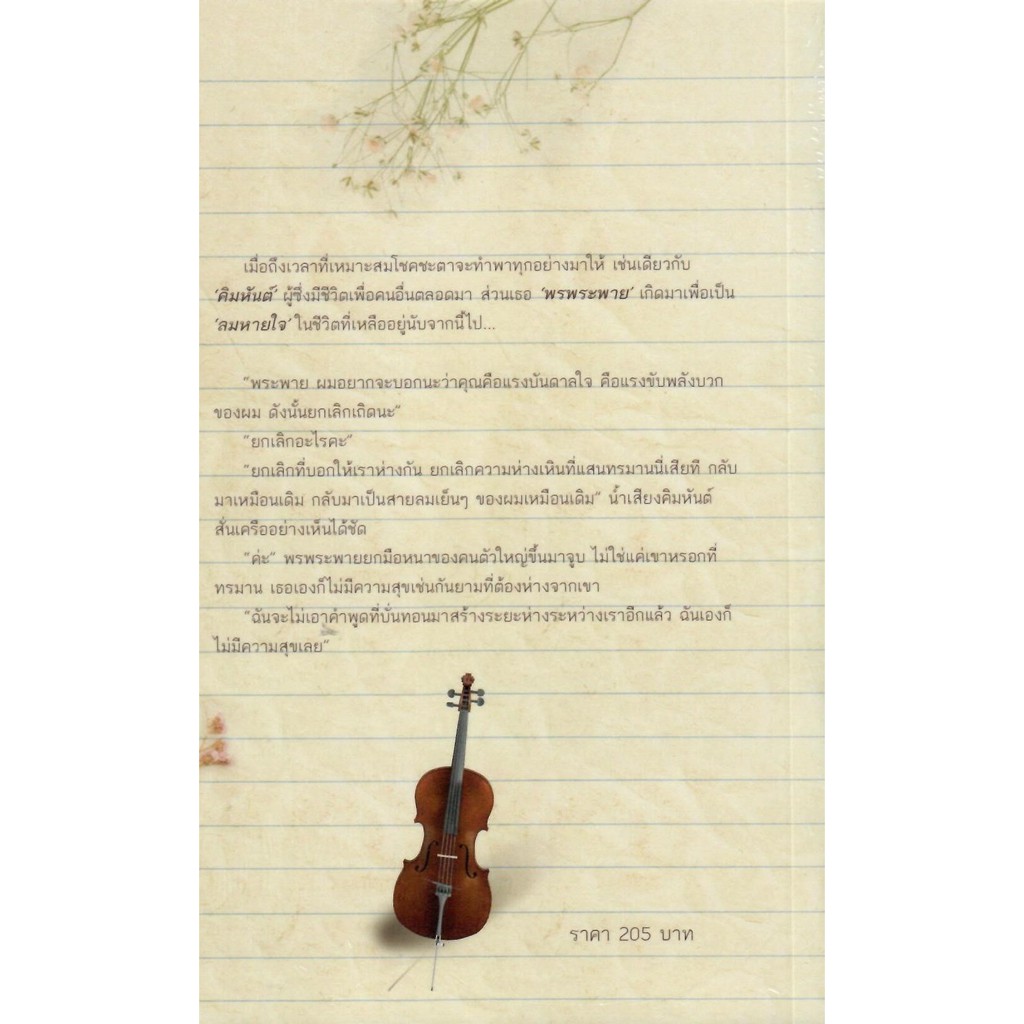 เมื่อถึงเวลาที่เหมาะสมโชคชะตาจะทำพาทุกอย่างมาให้ เช่นเดียวกับ
‘คิมหันต์’ ผู้ซึ่งมีชีวิตเพื่อคนอื่นตลอดมา ส่วนเธอ ‘พรพระพาย’ เกิดมาเพื่อเป็น
‘ลมหายใจ’ ในชีวิตที่เหลืออยู่นับจากนี้ไป...
“พระพาย ผมอยากจะบอกนะว่าคุณคือแรงบันดาลใจ คือแรงขับพลังบวก
ของผม ดังนั้นยกเลิกเถิดนะ”
“ยกเลิกอะไรคะ”
“ยกเลิกที่บอกให้เราห่างกัน ยกเลิกความห่างเหินที่แสนทรมานนี่เสียที กลับ
มาเหมือนเดิม กลับมาเป็นสายลมเย็นๆ ของผมเหมือนเดิม” น้ำเสียงคิมหันต์
สั่นเครืออย่างเห็นได้ชัด
“ค่ะ” พรพระพายยกมือหนาของคนตัวใหญ่ขึ้นมาจูบ ไม่ใช่แค่เขาหรอกที่
ทรมาน เธอเองก็ไม่มีความสุขเช่นกันยามที่ต้องห่างจากเขา
“ฉันจะไม่เอาคำพูดที่บั่นทอนมาสร้างระยะห่างระหว่างเราอีกแล้ว ฉันเองก็
ไม่มีความสุขเลย”
ราคา 205 บาท